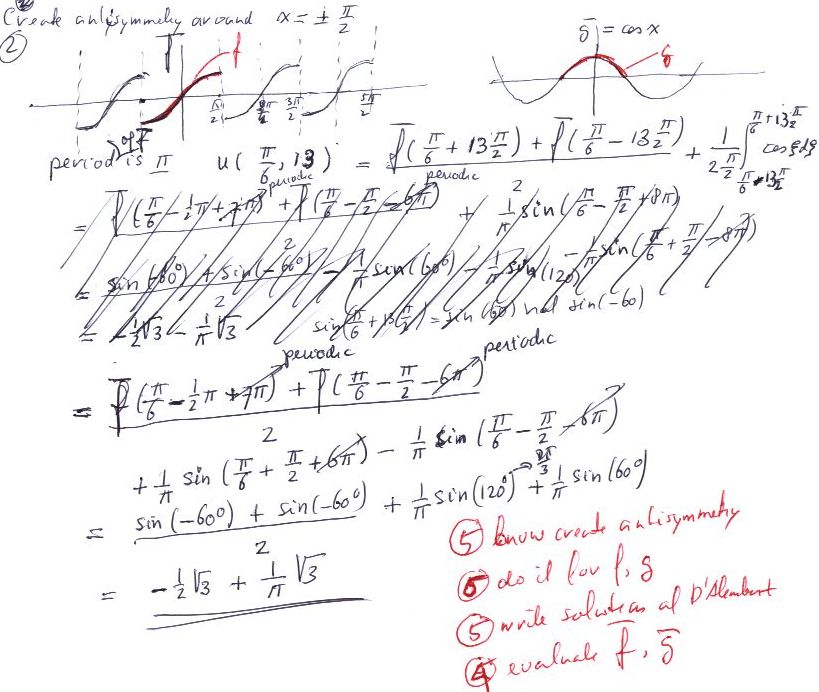 Create antisymmetry around x = ± π/2
② f̄ f ḡ = cos x g
π/2 3π/2 5π/2
period is π u(π/6, 13) = (f̄(π/6 + 13π/2) + f̄(π/6 − 13π/2))/2 + 1/(2 π/2) ∫_{π/6−13π/2}^{π/6+13π/2} cos ξ dξ
periodic periodic
= (f̄(π/6 − ½π + 7π) + f̄(π/6 − π/2 − 6π))/2 + 1/π sin(π/6 − π/2 + 8π)
− 1/π sin(π/6 + π/2 − 8π)
= (sin(−60°) + sin(−60°))/2 − 1/π sin(60°) − 1/π sin(120°)
= −½√3 − 1/π √3 sin(π/6 + 13(π/2)) = sin(60) not sin(−60)
periodic periodic
= (f̄(π/6 − ½π + 7π) + f̄(π/6 − π/2 − 6π))/2
+ 1/π sin(π/6 + π/2 + 6π) − 1/π sin(π/6 − π/2 − 6π)
= (sin(−60°) + sin(−60°))/2 + 1/π sin(120°) + 1/π sin(60°)
2π/3
= −½√3 + 1/π √3
⑤ know create antisymmetry
⑤ do it for f, g
⑤ write solution al D'Alembert
④ evaluate f̄, ḡ